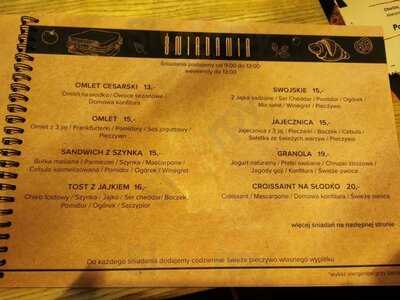 ŚNIADANIA
Śniadania podajemy od 9:00 do 12:00
weekendy do 13:00
OMLET CESARSKI 13,-
Omlet na słodko / Owoce sezonowe /
Domowa konfitura
OMLET 15,-
Omlet z 3 jaj / Frankfurterki / Pomidory / Sos jogurtowy /
Pieczywo
SANDWICH Z SZYNKĄ 15,-
Bułka maślana / Parmezan / Szynka / Mascarpone /
Cebula karmelizowana / Pomidor / Ogórek / Winegret
TOST Z JAJKIEM 16,-
Chleb tostowy / Szynka / Jajko / Ser cheddar / Boczek
Pomidor / Ogórek / Szczypior
SWOJSKIE 15,-
2 Jajka sadzone / Ser Cheddar / Pomidor / Ogórek
Mix sałat / Winegret / Pieczywo
JAJECZNICA 15,-
Jajecznica z 3 jaj / Pieczarki / Boczek / Cebula /
Sałatka ze świeżych warzyw / Pieczywo
GRANOLA 19,-
Jogurt naturalny / Płatki owsiane / Chrupki zbożowe /
Jagody goji / Konfitura / Świeże owoce
CROISSAINT NA SŁODKO 20,-
Croissant / Mascarpone / Domowa konfitura / Świeże owoce
więcej śniadań na następnej stronie
Do każdego śniadania dodajemy codziennie świeże pieczywo własnego wypieku